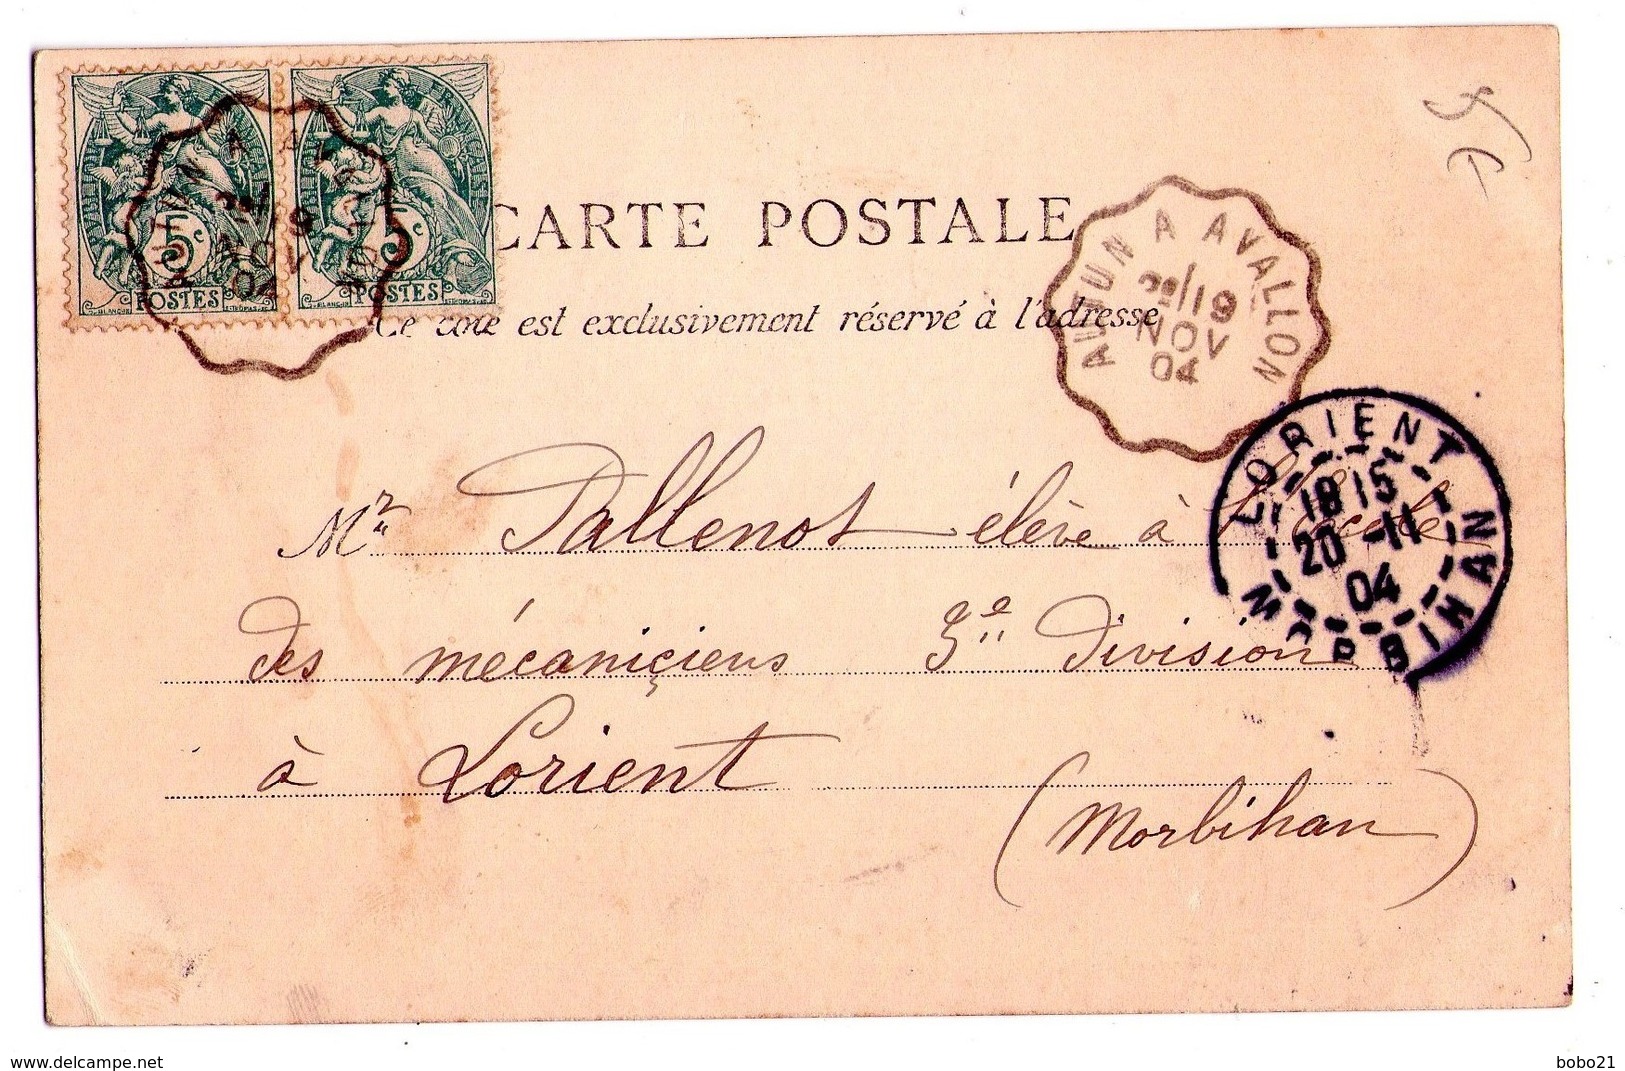 5c
POSTES
5c
POSTES
CARTE POSTALE
Ce côté est exclusivement réservé à l'adresse
AUTUN A AVALLON
19
NOV
04
AUTUN A AVALLON
19
NOV
04
LORIENT
MORBIHAN
18 15
20 -11
04
Mr Pallenot élève à l'école
des mécaniciens 3e division
à Lorient
(Morbihan)
delcampe.net
bobo21